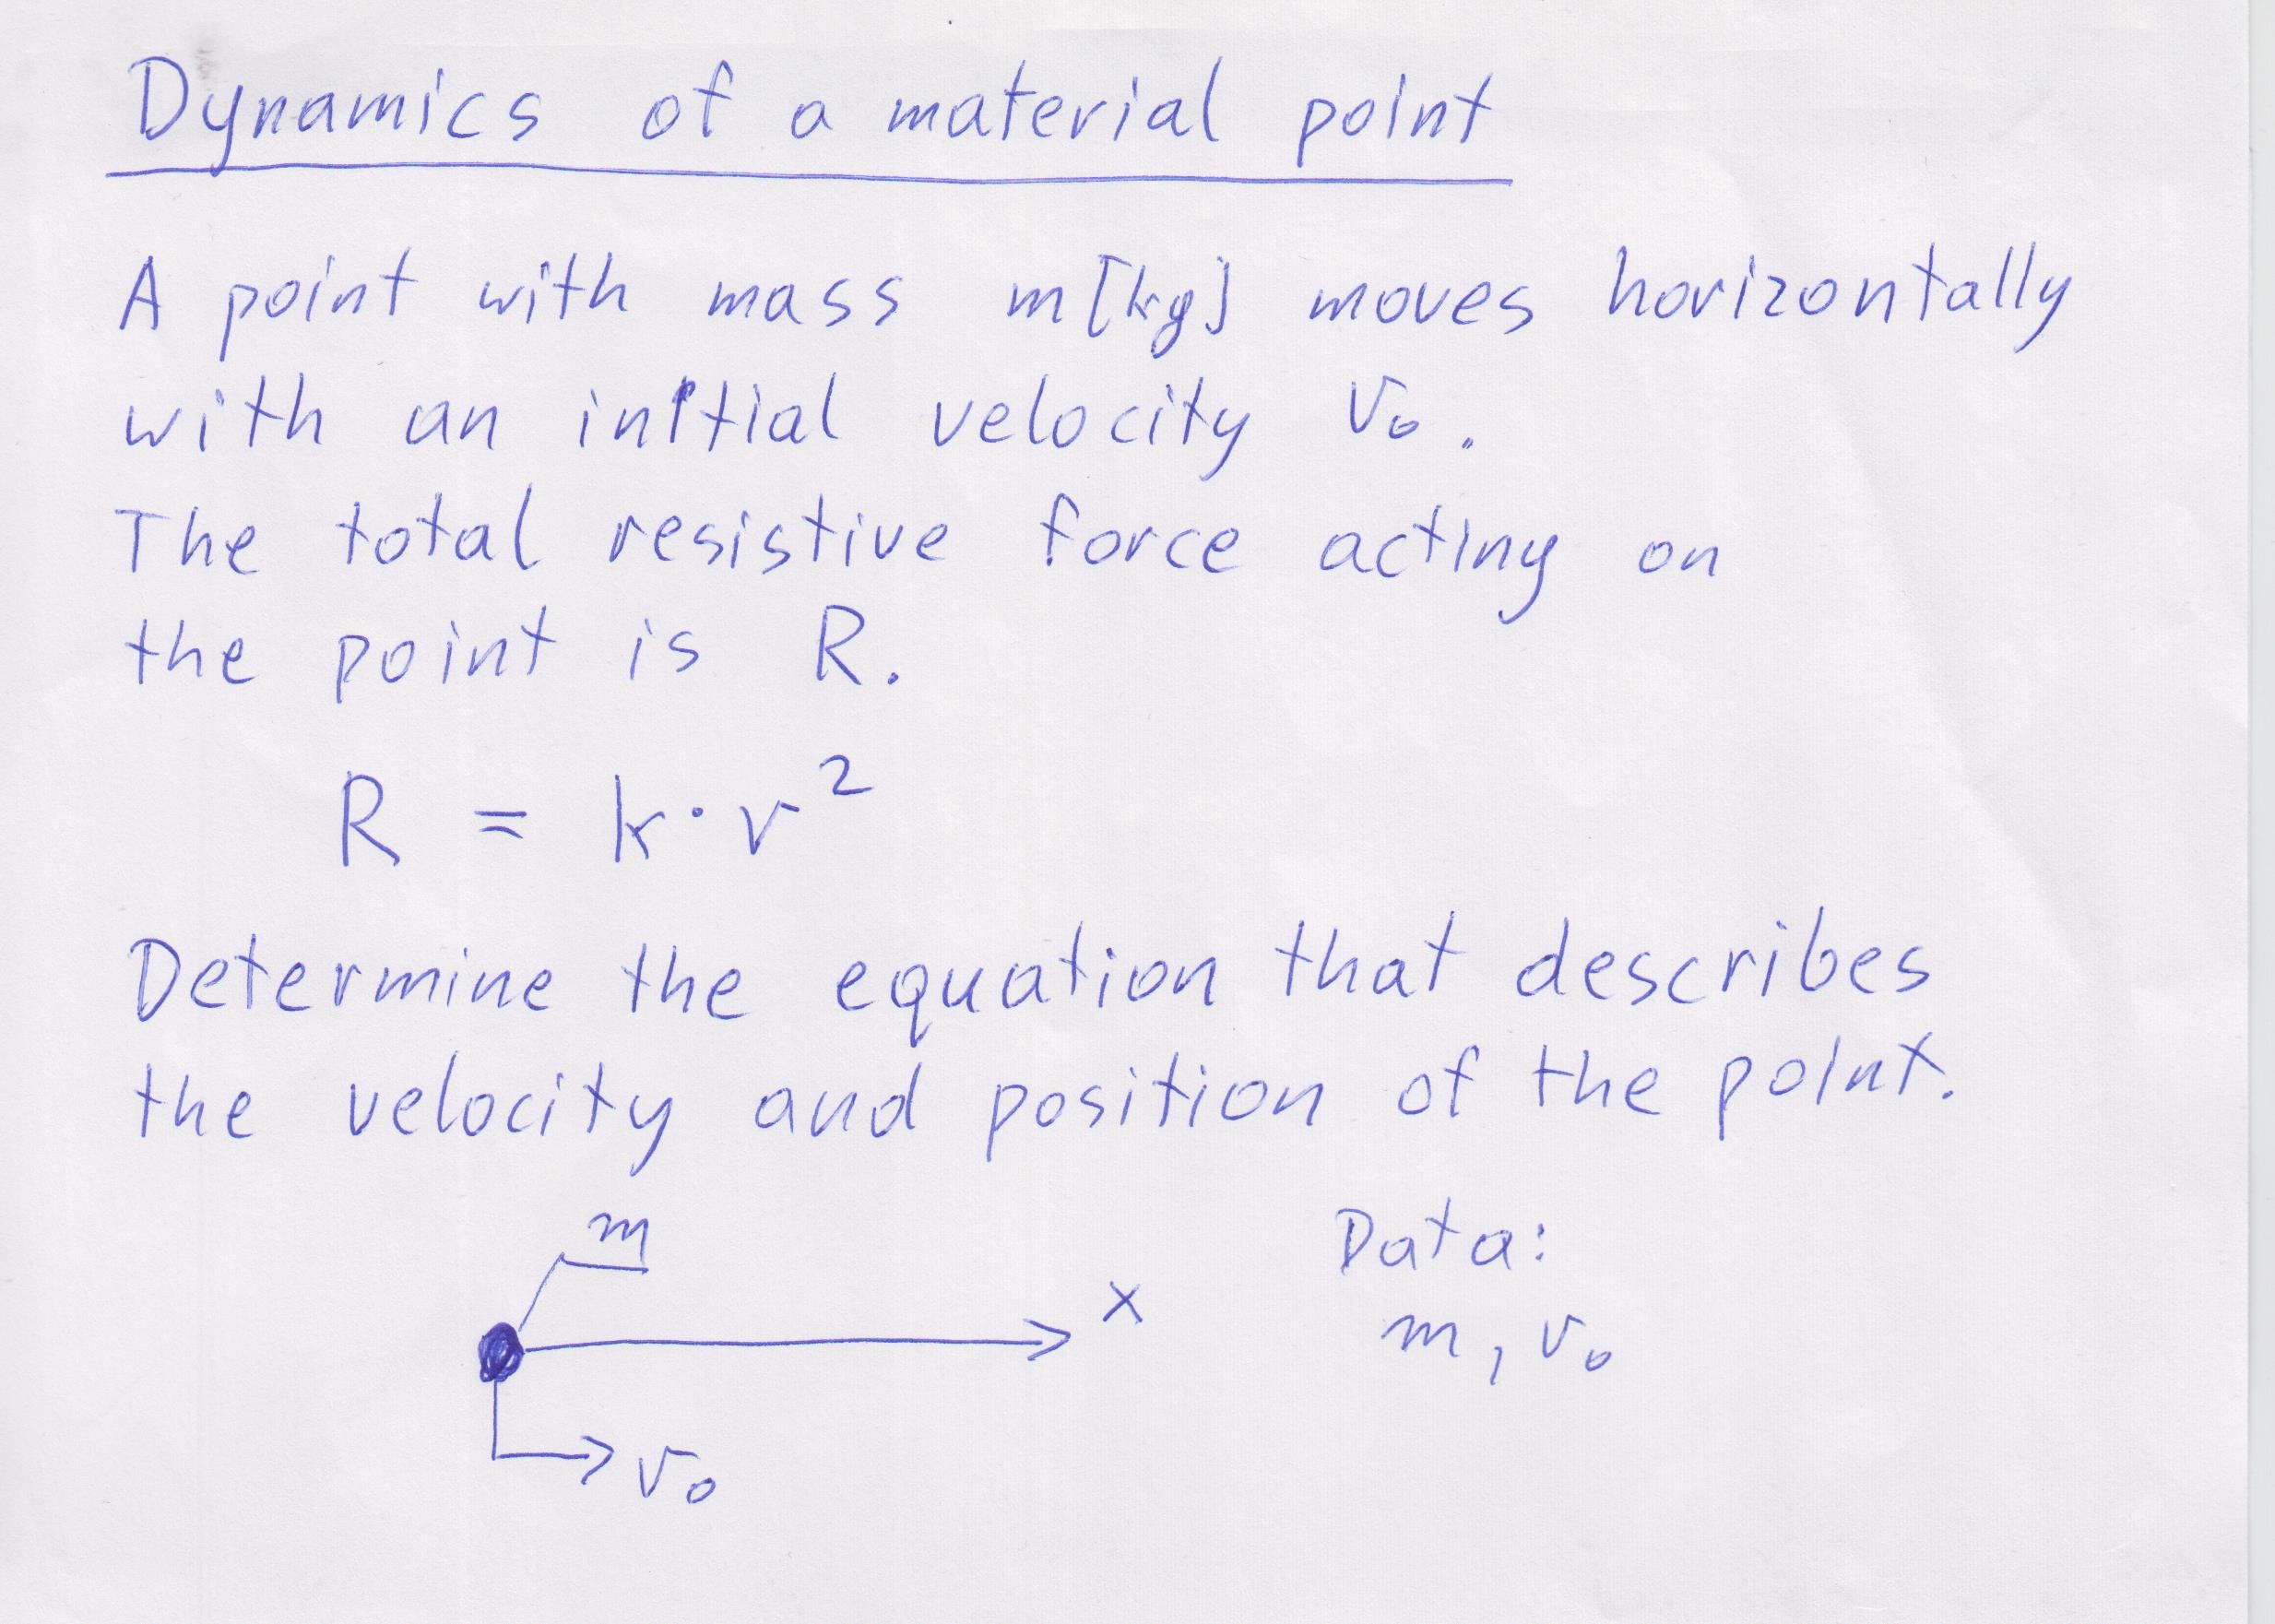 Dynamics of a material point
A point with mass m[kg] moves horizontally
with an initial velocity v₀.
The total resistive force acting on
the point is R.
R = k·v²
Determine the equation that describes
the velocity and position of the point.
m
x
v₀
Data:
m, v₀